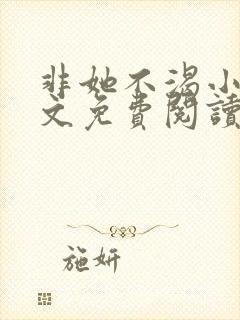 非她不渴小
文免費閱讀
施妍